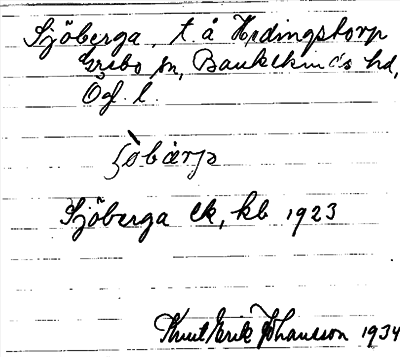 Sjöberga, t. å Hedingstorp
Grebo sn, Bankekinds hd,
Ög. l.
ʃöbärp
Sjöberga ek, kb 1923
Knut Erik Johansson 1934